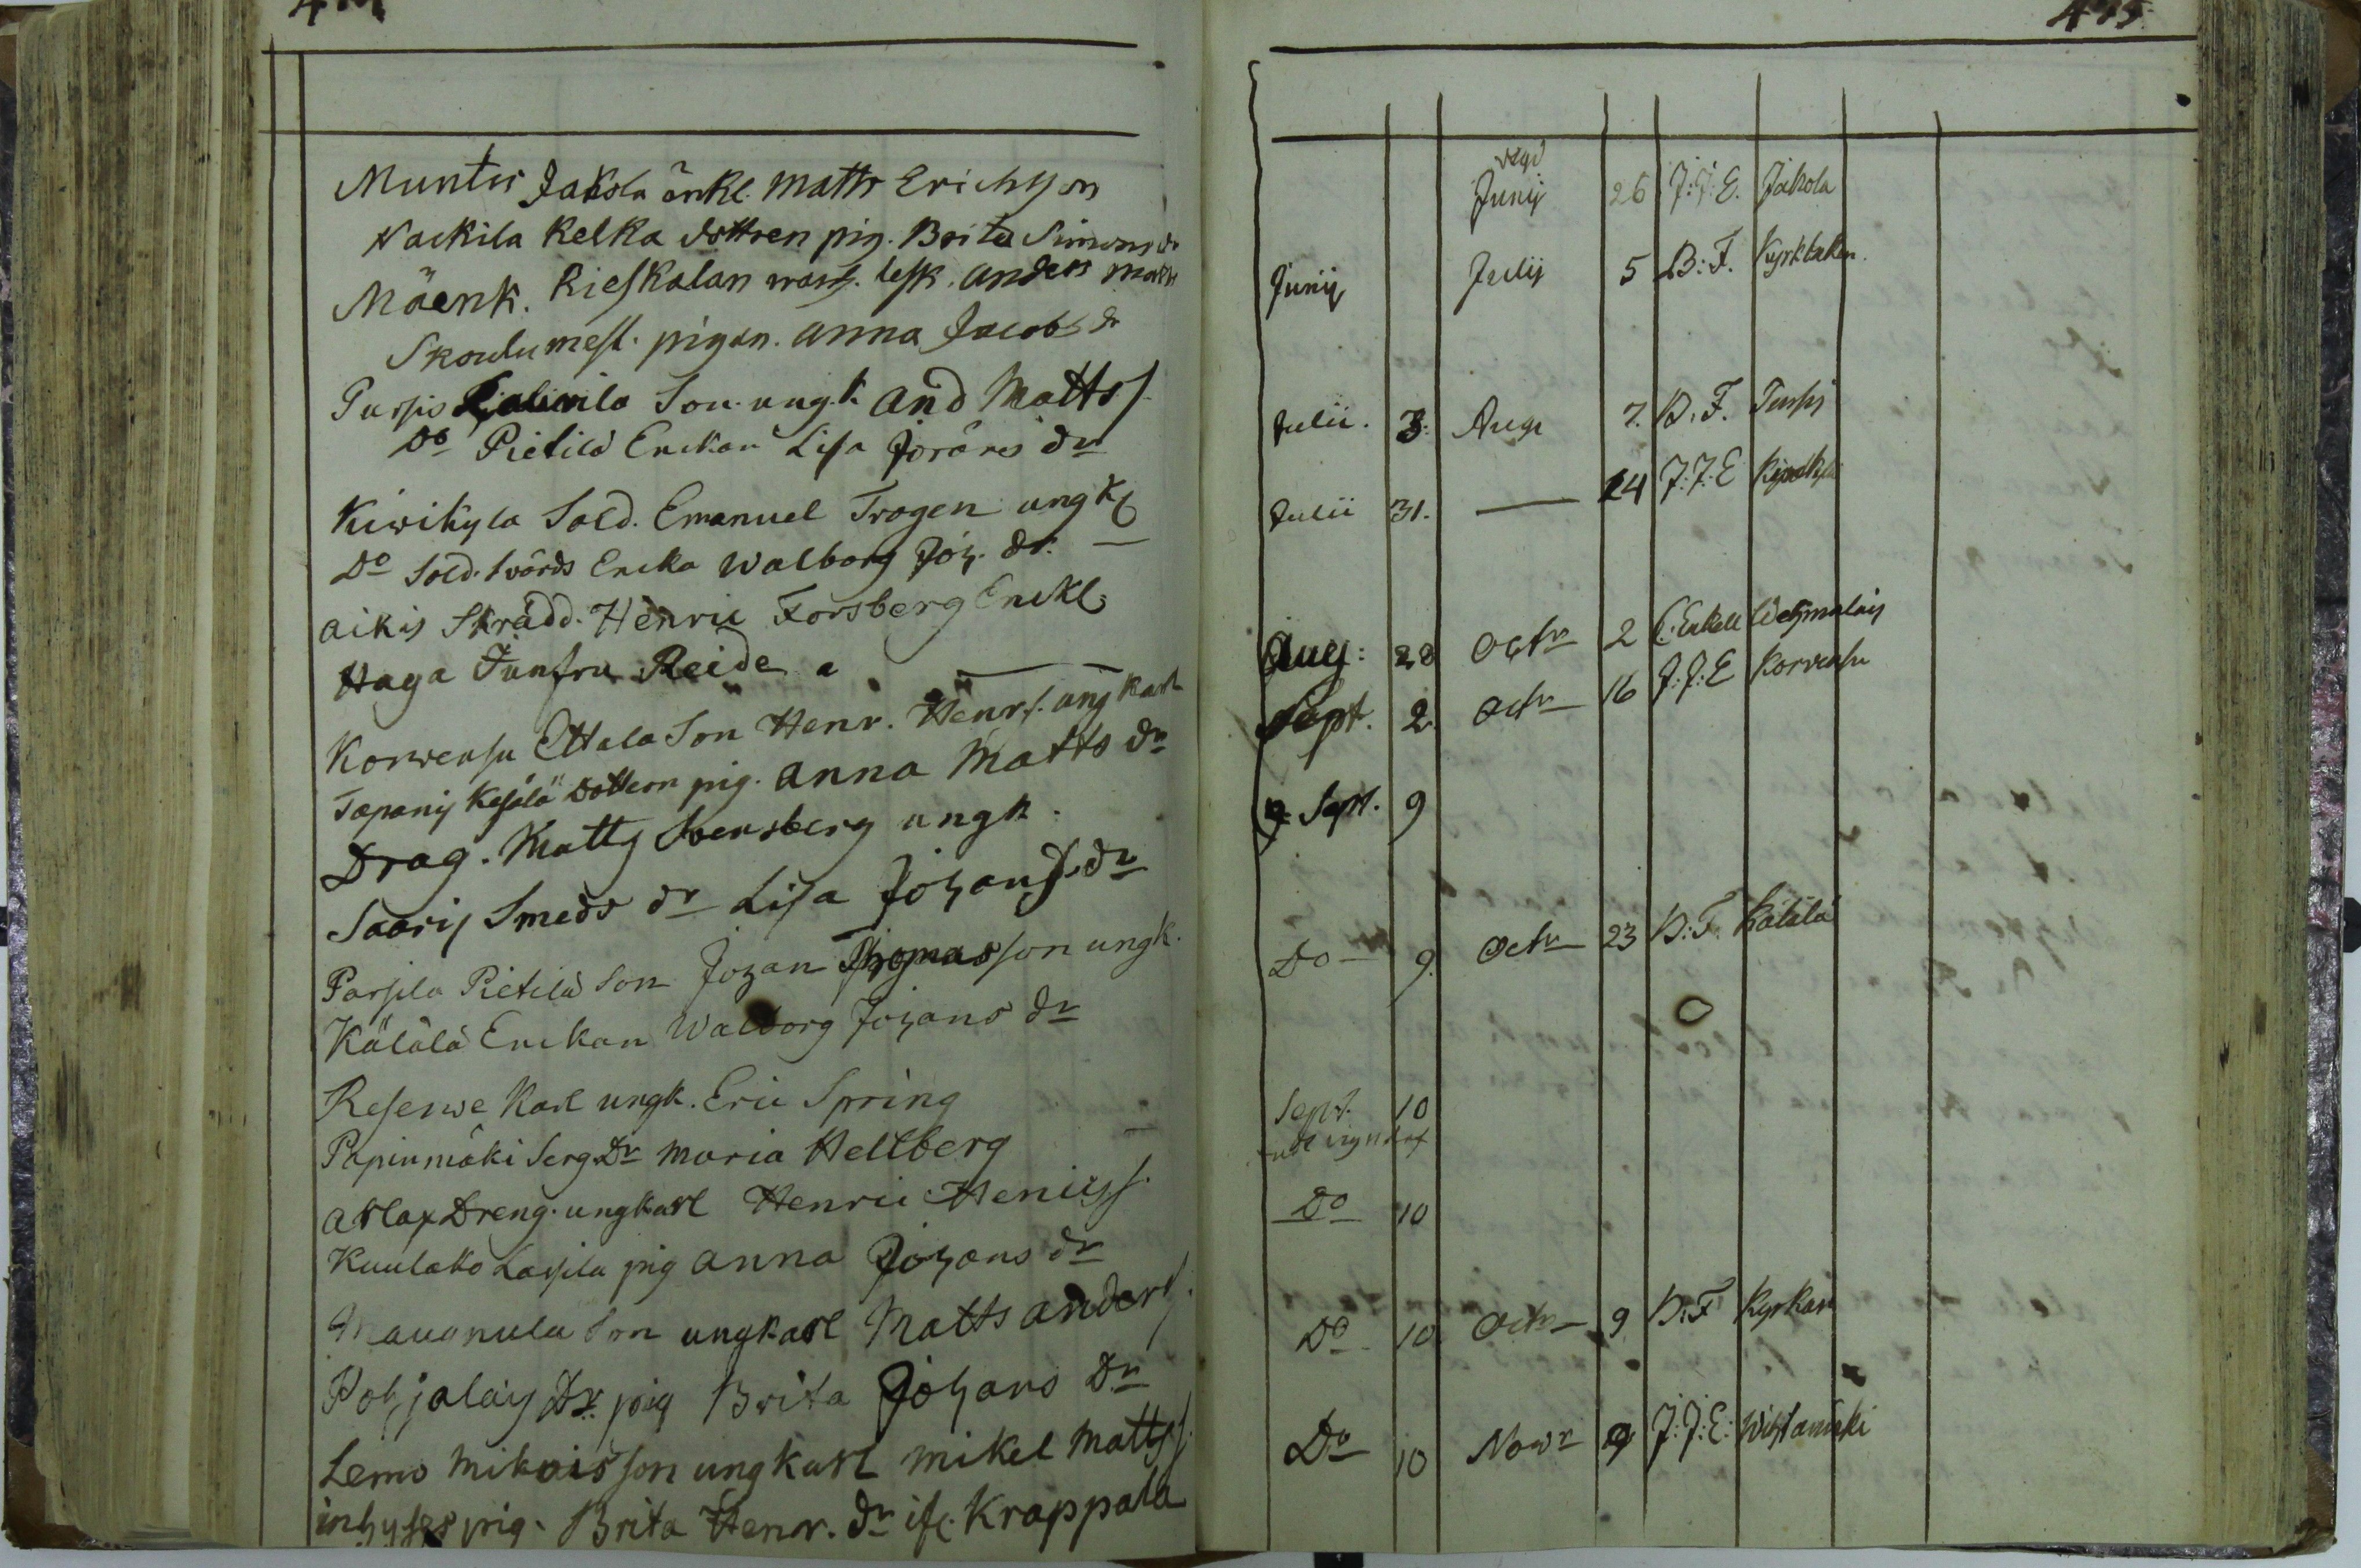 415.
Muntis Jakola änkl. Matts Erichsson
Nackila Kelka dottren pig. Brita Simons dr
Mäenk. Rieskalan lesk. Anders Matts
Skoulumest. pigan. Anna Jacobs dr
Pursis Son ungk And Mattss.
Do Pietilä Enckan Lisa Jörans dr
Kiwikyla Sold. Emanuel Trogen ungk
Do Sold. Svärds Encka Walborg Joh. dr. —
Aikis Skrädd. Henric Forsberg Enckl.
Haga Junfru Reide a
Korvensu Ettala Son Henr. Henrs. ungkarl
Tapanij Kesälä Dottern pig. Anna Matts dr
Drag. Matts Svensberg ungk.
Saaris Smeds dr Lisa Johans dr
Parsila Pietilä Son Johan Thomasson ungk.
Kälälä Enckan Walborg Johans dr
Reserwe Karl ungk. Eric Spring
Papinmäki Serg. Dr Maria Hellberg
Arlax Dreng. ungkarl Henric Henricss.
Kuulako Lassila pig Anna Johans dr
Maunula Son ungkarl Matts Anderss.
Pohjalais Dr. pig Brita Johans Dr
Lemo Mikois son ungkarl Mikel Mattss.
inhyses pig. Brita Henr. dr if. Krappala
vigd
Junij 26 J:J:E. Jakola
Junij Julij 5 B:F. Kyrkbaken.
Julii. 3. Aug 7. B.F. Pursis
Julii 31. — 14 J:J:E Kiwikyla
Aug: 28 Octr 2 C. Enkell Wehmalais
Sept. 2. Octr 16 J:J:E Korvensu
Sept. 9
Do 9. Octr 23 B:F. Kälälä
Sept. 10
Do 10
Do 10 Octr 9 B:F Kyrkan
Do 10 Novr 9 J:J:E: Wihtamäki